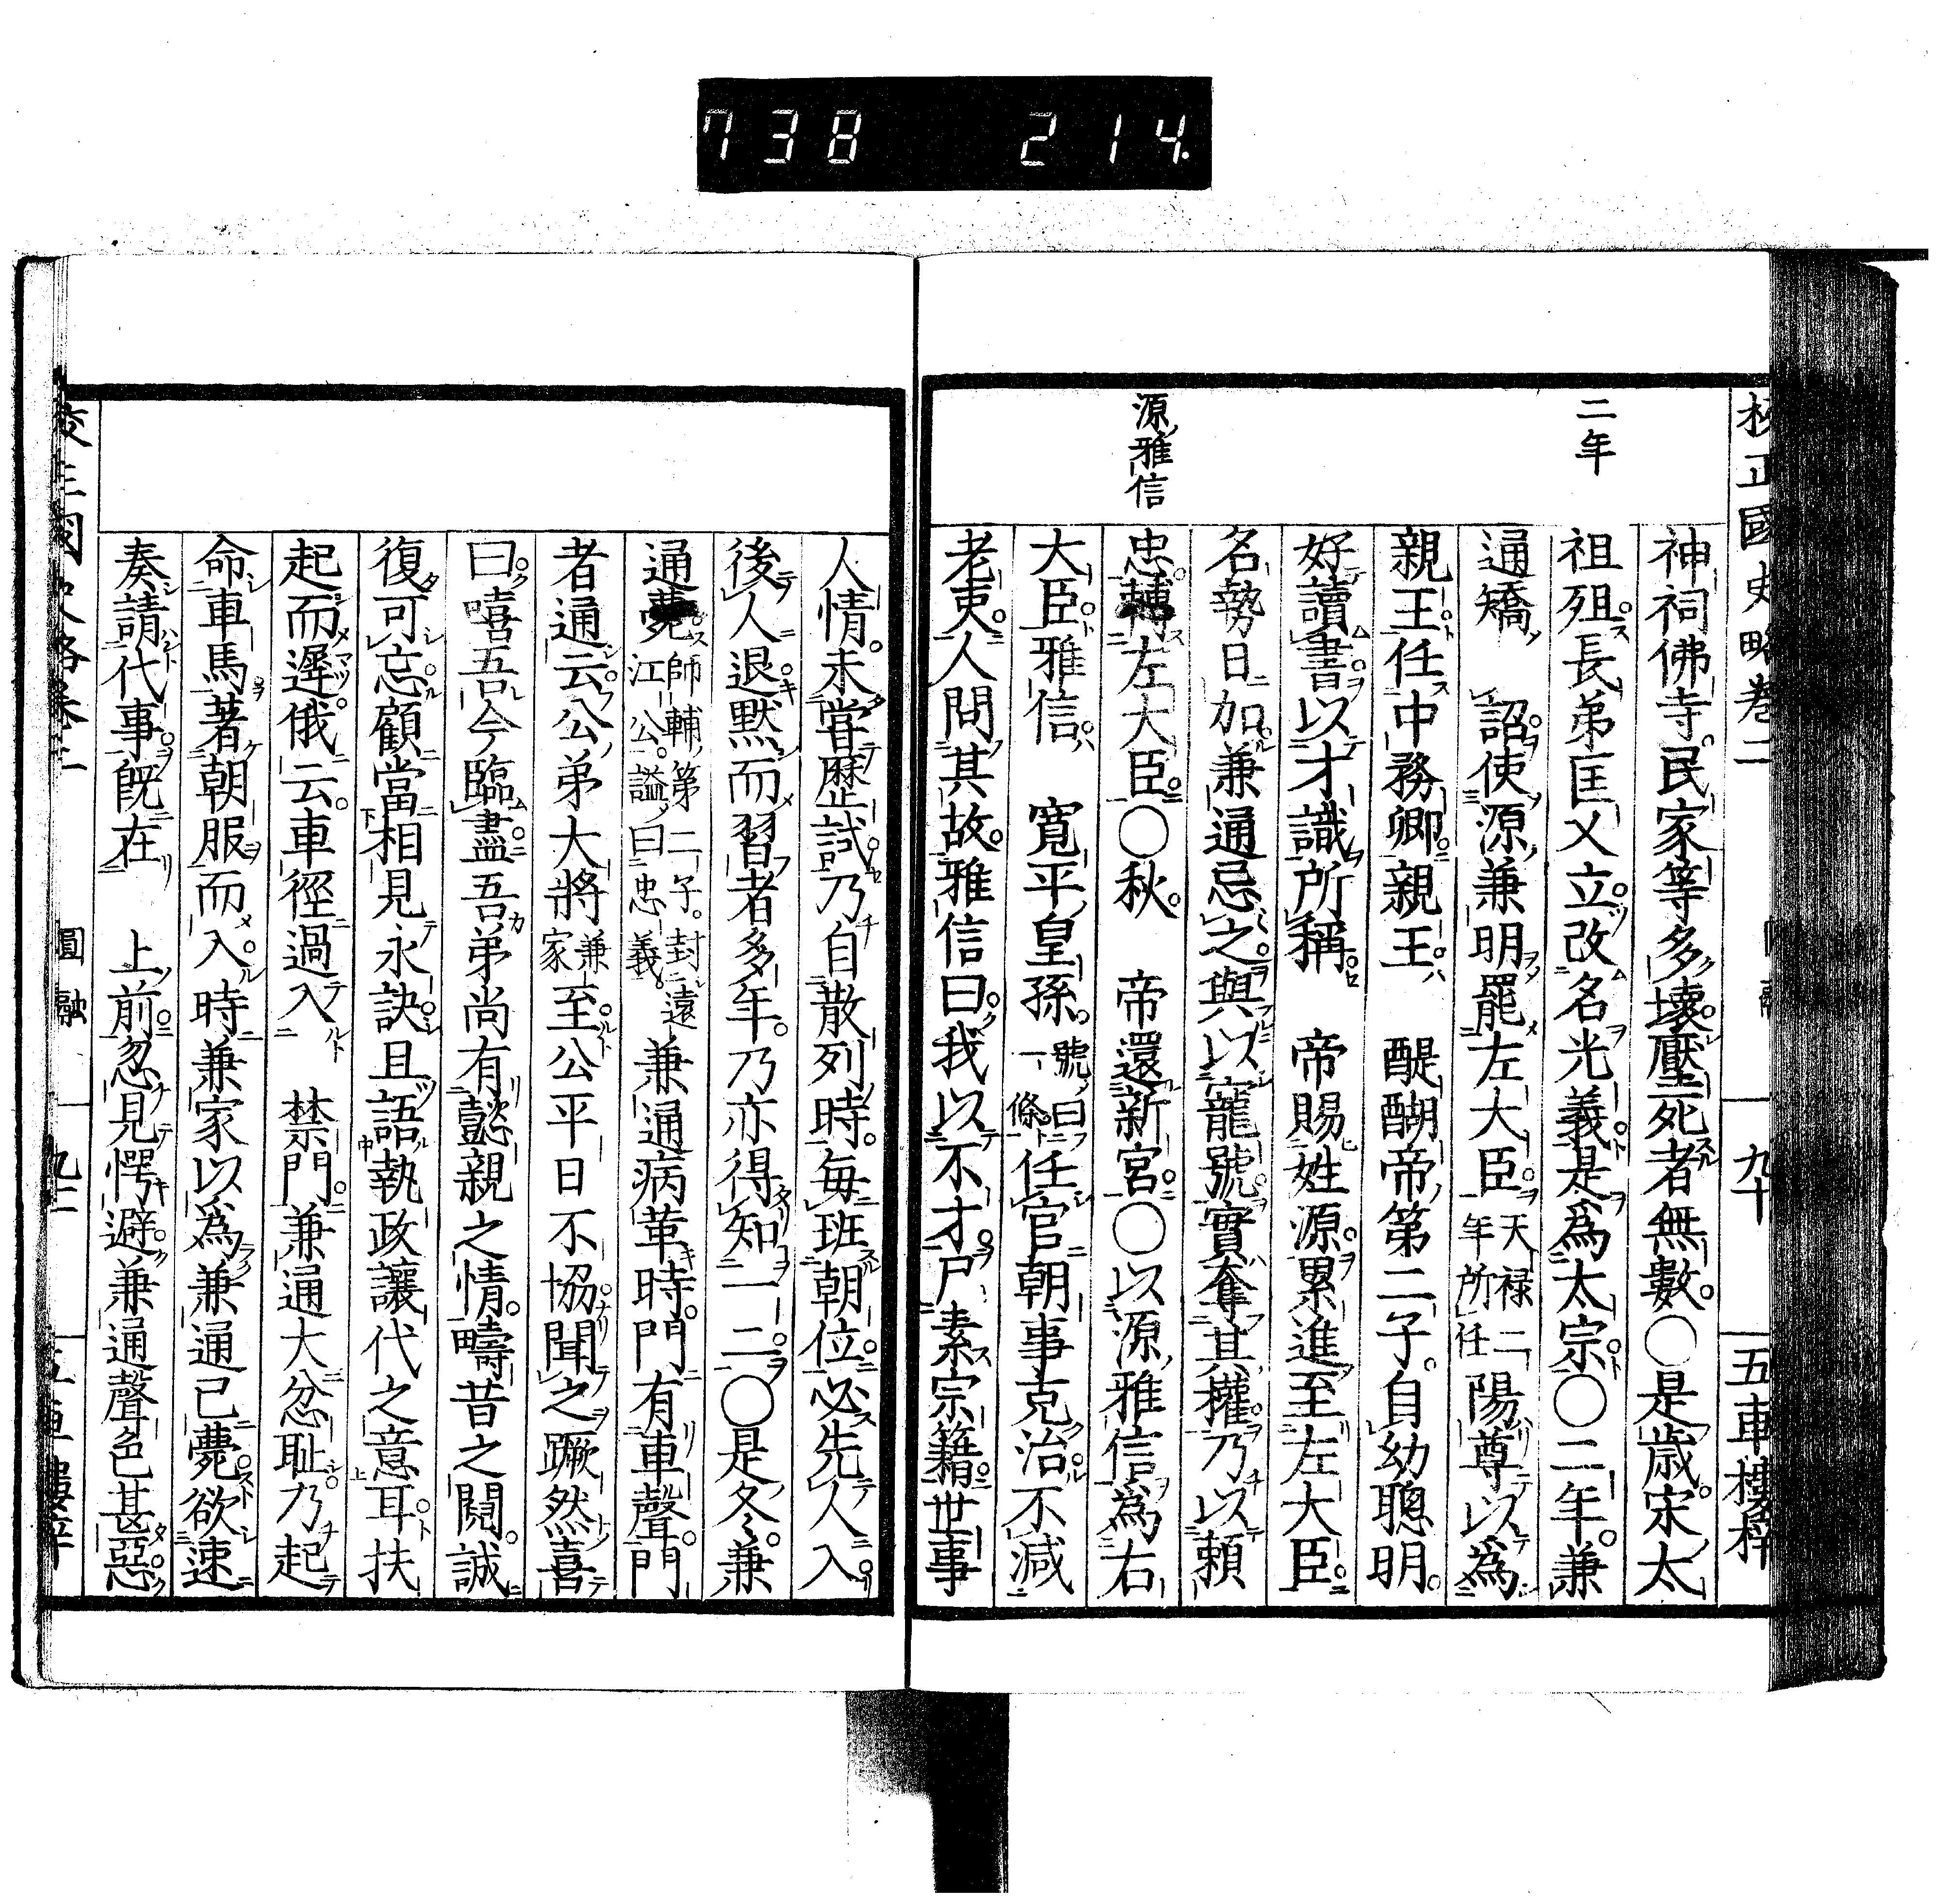 738 214
校正國史略卷二 九十 五車樓梓
二年
源雅信
神祠佛寺民家等多壞壓死者無數○是歲宋太
祖殂長弟匡乂立改名光義是爲太宗○二年兼
通矯 詔使源兼明罷左大臣天祿二年所任陽尊以爲
親王任中務卿親王 醍醐帝第二子自幼聰明
好讀書以才識所稱 帝賜姓源累進至左大臣
名勢日加兼通忌之與以寵號實奪其權乃以賴
忠轉左大臣○秋 帝還新宮○以源雅信爲右
大臣雅信 寬平皇孫號曰一條任官朝事克治不減
老吏人問其故雅信曰我以不才尸素宗籍世事
人情未嘗歷試乃自散列時每班朝位必先人入
後人退默而習者多年乃亦得知一二○是冬兼
通薨師輔第二子封遠江公謚曰忠義兼通病革時門有車聲門
者通云公弟大將兼家至公平日不協聞之蹶然喜
曰嘻吾今臨盡吾弟尚有懿親之情疇昔之鬩誠
復可忘顧當相見永訣且語執政讓代之意耳扶
起而遲俄云車徑過入 禁門兼通大忿恥乃起
命車馬著朝服而入時兼家以爲兼通已薨欲速
奏請代事旣在 上前忽見愕避兼通聲色甚惡
圓融